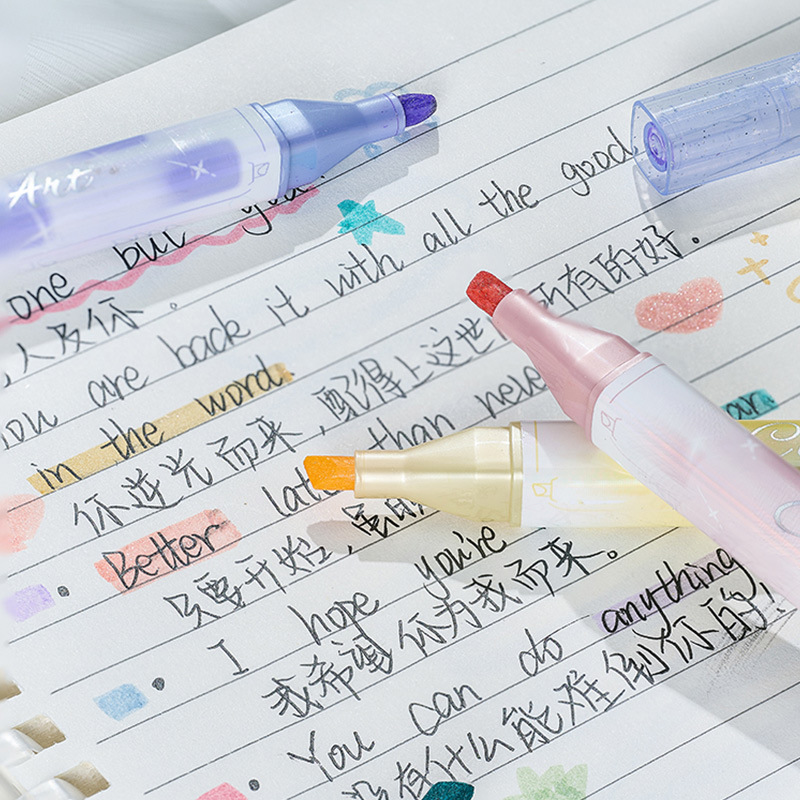 Art
one but you.
人及你。
you are back it with all the good
in the word.
你逆光而来,配得上这世 所有的好。
Better late than never
ar
只要开始,
I hope you're
我希望你为我而来。
You can do anything
没有什么能难倒你的,